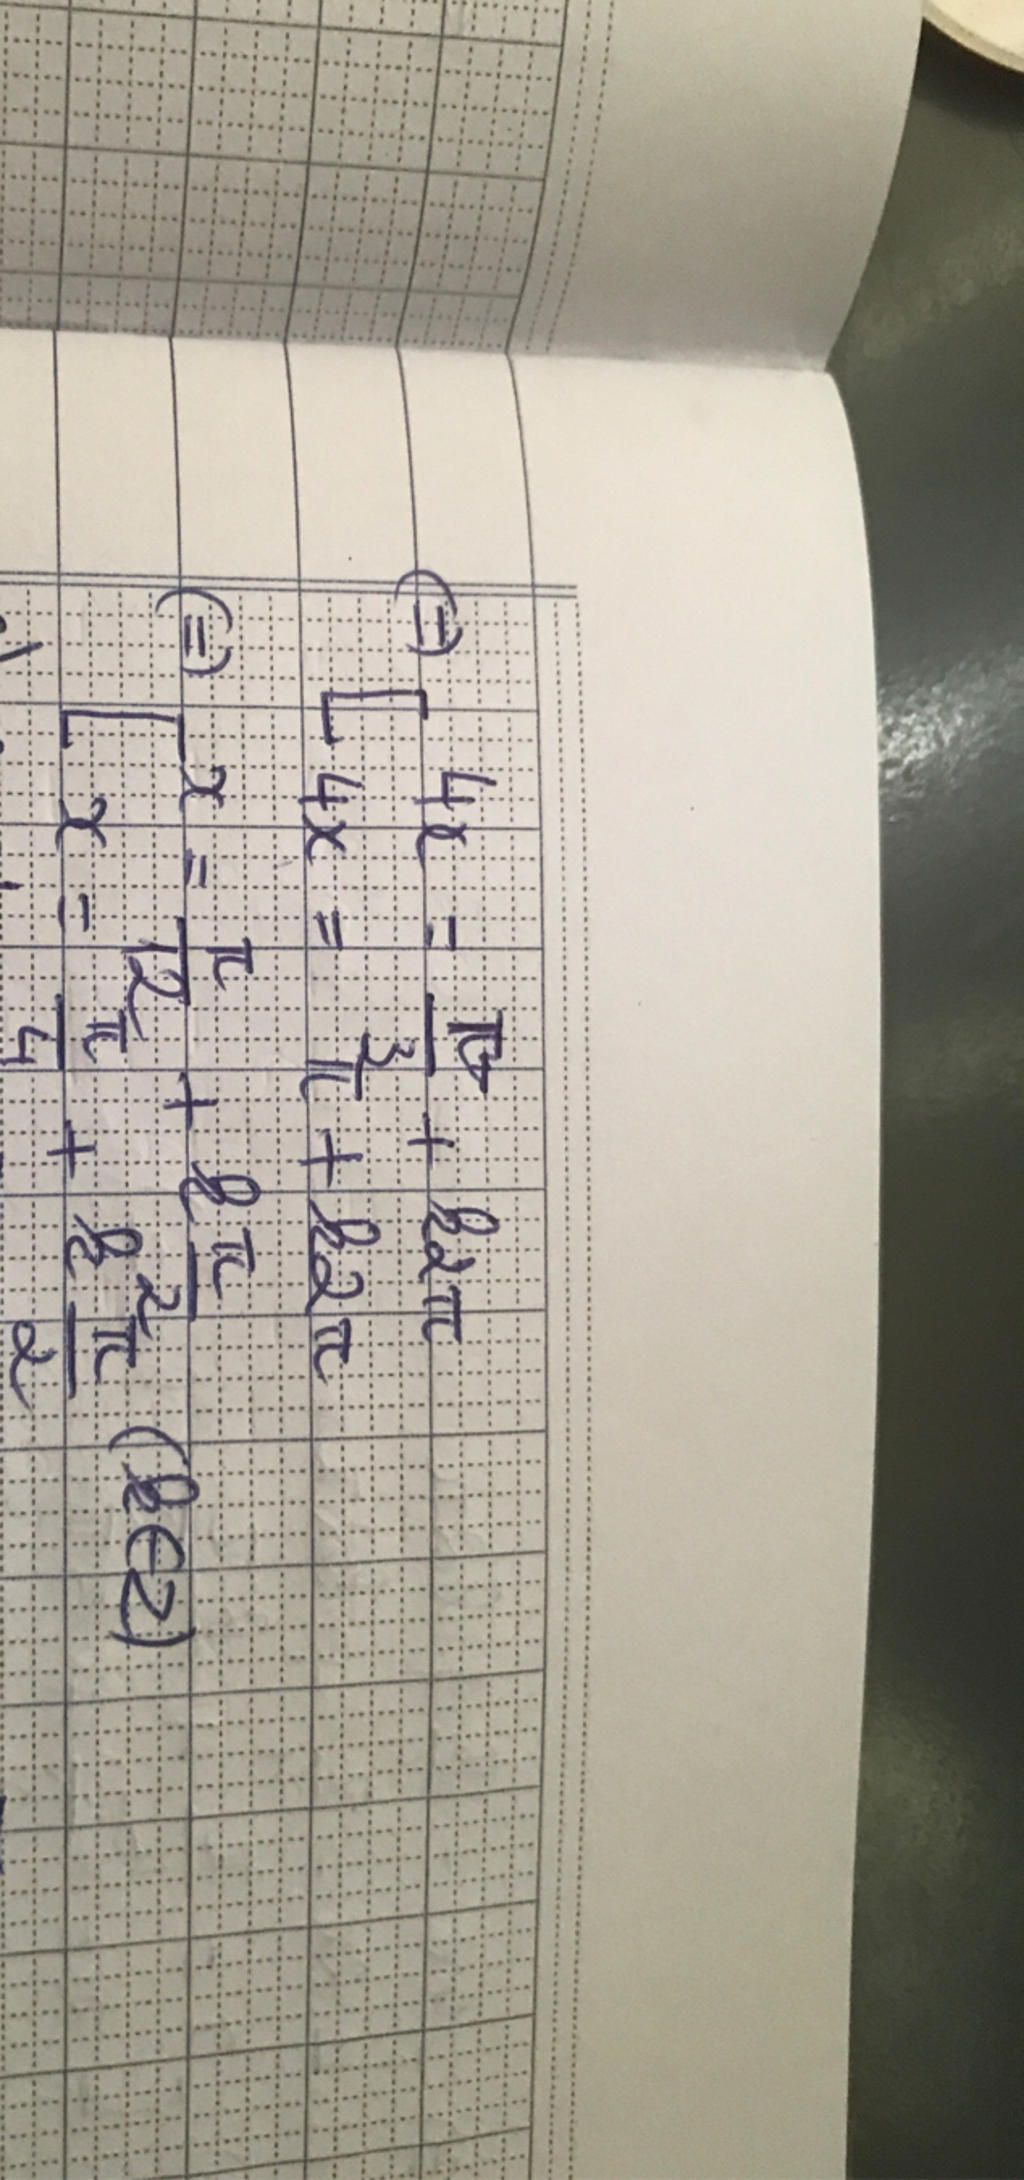 (=) [ 4x = π/3 + k2π
[ 4x = π + k2π
(=) [ x = π/12 + k π/2
[ x = π/4 + k π/2 (k ∈ Z)